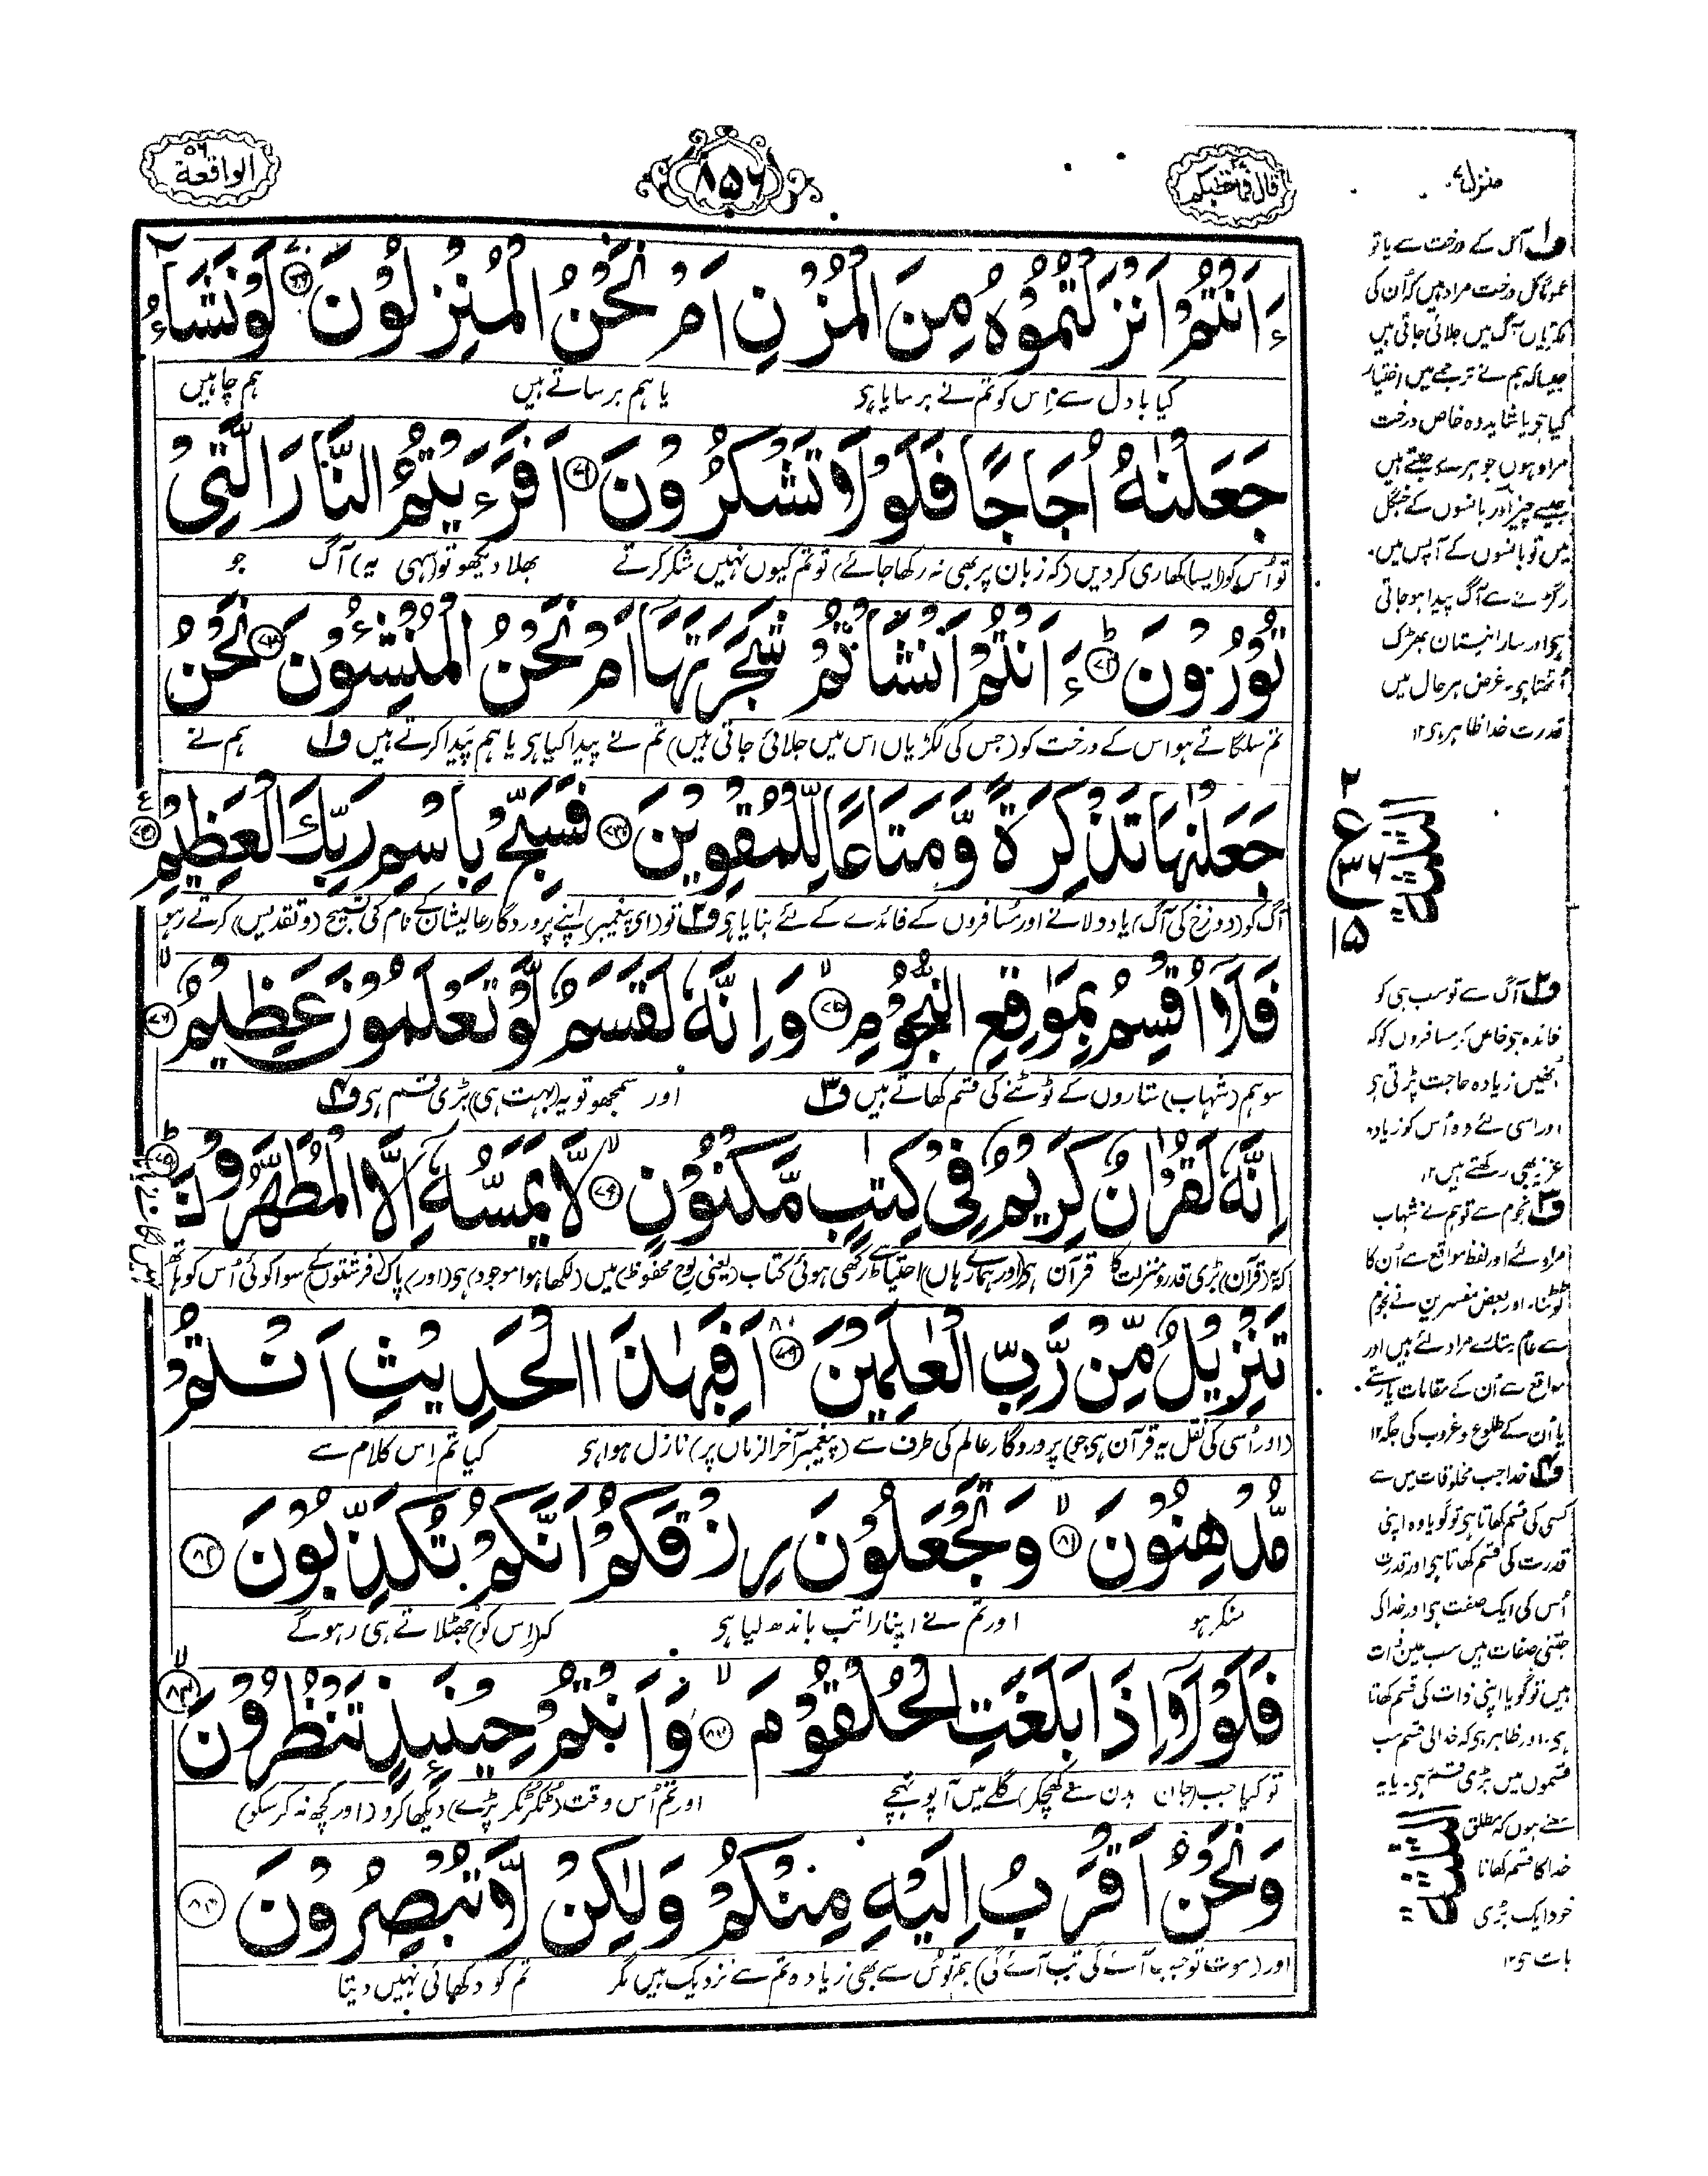 الواقعة ٥٦
٨٥٦
قال فما خطبکم
منزل ٧
ءَاَنۡتُمۡ اَنۡزَلۡتُمُوۡهُ مِنَ الۡمُزۡنِ اَمۡ نَحۡنُ الۡمُنۡزِلُوۡنَ ﴿٦٩﴾ لَوۡ نَشَآءُ
کیا بادل سے اِس کو تم نے برسایا ہی یا ہم برساتے ہیں ہم چاہیں
جَعَلۡنٰهُ اُجَاجًا فَلَوۡلَا تَشۡكُرُوۡنَ ﴿٧٠﴾ اَفَرَءَيۡتُمُ النَّارَ الَّتِىۡ
تو اُس کو (ایسا) کھاری کردیں (کہ زبان پر بھی نہ رکھا جائے) تو تم کیوں نہیں شکر کرتے بھلا دیکھو تو (سہی یہ) آگ جو
تُوۡرُوۡنَ ﴿٧١﴾ ءَاَنۡتُمۡ اَنۡشَاۡتُمۡ شَجَرَتَهَاۤ اَمۡ نَحۡنُ الۡمُنۡشِـُٔوۡنَ ﴿٧٢﴾ نَحۡنُ
تم سلگاتے ہو اس کے درخت کو (جس کی لکڑیاں اس میں جلائی جاتی ہیں) تم نے پیدا کیا ہی یا ہم پیدا کرتے ہیں ف۱ ہم نے
جَعَلۡنٰهَا تَذۡكِرَةً وَّمَتَاعًا لِّلۡمُقۡوِيۡنَ ﴿٧٣﴾ فَسَبِّحۡ بِاسۡمِ رَبِّكَ الۡعَظِيۡمِ ﴿٧٤﴾
آگ کو (دوزخ کی آگ) یاد دلانے اور مسافروں کے فائدے کے لئے بنایا ہی ف۲ تو (ای پیغمبر) اپنے پروردگار عالیشان کے نام کی تسبیح (و تقدیس) کرتے رہو
فَلَاۤ اُقۡسِمُ بِمَوٰقِعِ النُّجُوۡمِ ﴿٧٥﴾ وَاِنَّهٗ لَقَسَمٌ لَّوۡ تَعۡلَمُوۡنَ عَظِيۡمٌ ﴿٧٦﴾
سو ہم (شہاب) ستاروں کے ٹوٹنے کی قسم کھاتے ہیں ف۳ اور سمجھو تو یہ (بہت ہی) بڑی قسم ہی ف۴
اِنَّهٗ لَقُرۡاٰنٌ كَرِيۡمٌ فِىۡ كِتٰبٍ مَّكۡنُوۡنٍ ﴿٧٨﴾ لَّا يَمَسُّهٗۤ اِلَّا الۡمُطَهَّرُوۡنَ ﴿٧٩﴾
کہ یہ (قرآن) بڑی قدر و منزلت کا قرآن ہی (اور ہمارے یہاں) احتیاط سے رکھی ہوئی کتاب (یعنی لوح محفوظ) میں (لکھا ہوا موجود) ہی (اور) پاک فرشتوں کے سوا کوئی اُس کو ہاتھ
تَنۡزِيۡلٌ مِّنۡ رَّبِّ الۡعٰلَمِيۡنَ ﴿٨٠﴾ اَفَبِهٰذَا الۡحَدِيۡثِ اَنۡتُمۡ
(اور اُسی کی نقل یہ قرآن ہی جو) پروردگار عالم کی طرف سے (پیغمبر آخر الزماں پر) نازل ہوا ہی کیا تم اِس کلام سے
مُّدۡهِنُوۡنَ ﴿٨١﴾ وَتَجۡعَلُوۡنَ رِزۡقَكُمۡ اَنَّكُمۡ تُكَذِّبُوۡنَ ﴿٨٢﴾
منکر ہو اور تم نے اپنا راتب باندھ لیا ہی کہ (اِس کو) جھٹلاتے ہی رہو گے
فَلَوۡلَاۤ اِذَا بَلَغَتِ الۡحُلۡقُوۡمَ ﴿٨٣﴾ وَاَنۡتُمۡ حِيۡنَئِذٍ تَنۡظُرُوۡنَ ﴿٨٤﴾
تو کیا جب (جان بدن سے کھچکر) گلے میں آ پونہچے اور تم اُس وقت (ٹکر ٹکر پڑے) دیکھا کرو (اور کچھ نہ کر سکو)
وَنَحۡنُ اَقۡرَبُ اِلَيۡهِ مِنۡكُمۡ وَلٰكِنۡ لَّا تُبۡصِرُوۡنَ
اور (موت تو جب آئے گی تب آئے گی) ہم تو اُس سے بھی زیادہ تم سے نزدیک ہیں مگر تم کو دکھائی نہیں دیتا
ف۱ آگ کے درخت سے یا تو
عموماً کل درخت مراد ہیں کہ اُن کی
لکڑیاں آگ میں جلائی جاتی ہیں
جیسا کہ ہم نے ترجمے میں اختیار
کیا ہی یا شاید وہ خاص درخت
مراد ہوں جو ہرے جلتے ہیں
جیسے چیڑ اور بانسوں کے جنگل
میں تو بانسوں کے آپس میں
رگڑنے سے آگ پیدا ہوجاتی
ہی اور سارا نیستان بھڑک
اُٹھتا ہی۔ غرض ہر حال میں
قدرت خدا ظاہر ہی ۱۲
٢
ع
٣٦
١٥
الثلثة
ف۲ آگ سے تو سب ہی کو
فائدہ ہی خاص کر مسافروں کو کہ
اُنھیں زیادہ حاجت پڑتی ہی
اور اسی لئے وہ اُس کو زیادہ
عزیز بھی رکھتے ہیں ۱۲
ف۳ نجوم سے تو ہم نے شہاب
مراد لئے اور لفظ مواقع سے اُن کا
ٹوٹنا۔ اور بعض مفسرین نے نجوم
سے عام ستارے مراد لئے ہیں اور
مواقع سے اُن کے مقامات یا رستے
یا اُن کے طلوع و غروب کی جگہ ۱۲
ف۴ خدا جب مخلوقات میں سے
کسی کی قسم کھاتا ہی تو گویا وہ اپنی
قدرت کی قسم کھاتا ہی اور قدرت
اُس کی ایک صفت ہی اور خدا کی
جتنی صفات ہیں سب عین ذات
ہیں تو گویا اپنی ذات کی قسم کھاتا
ہی۔ اور ظاہر ہی کہ خدا کی قسم سب
قسموں میں بڑی قسم ہی۔ یا یہ
معنے ہوں کہ مطلق
خدا کا قسم کھانا
خود ایک بڑی
بات ہی ۱۲
الثلثة